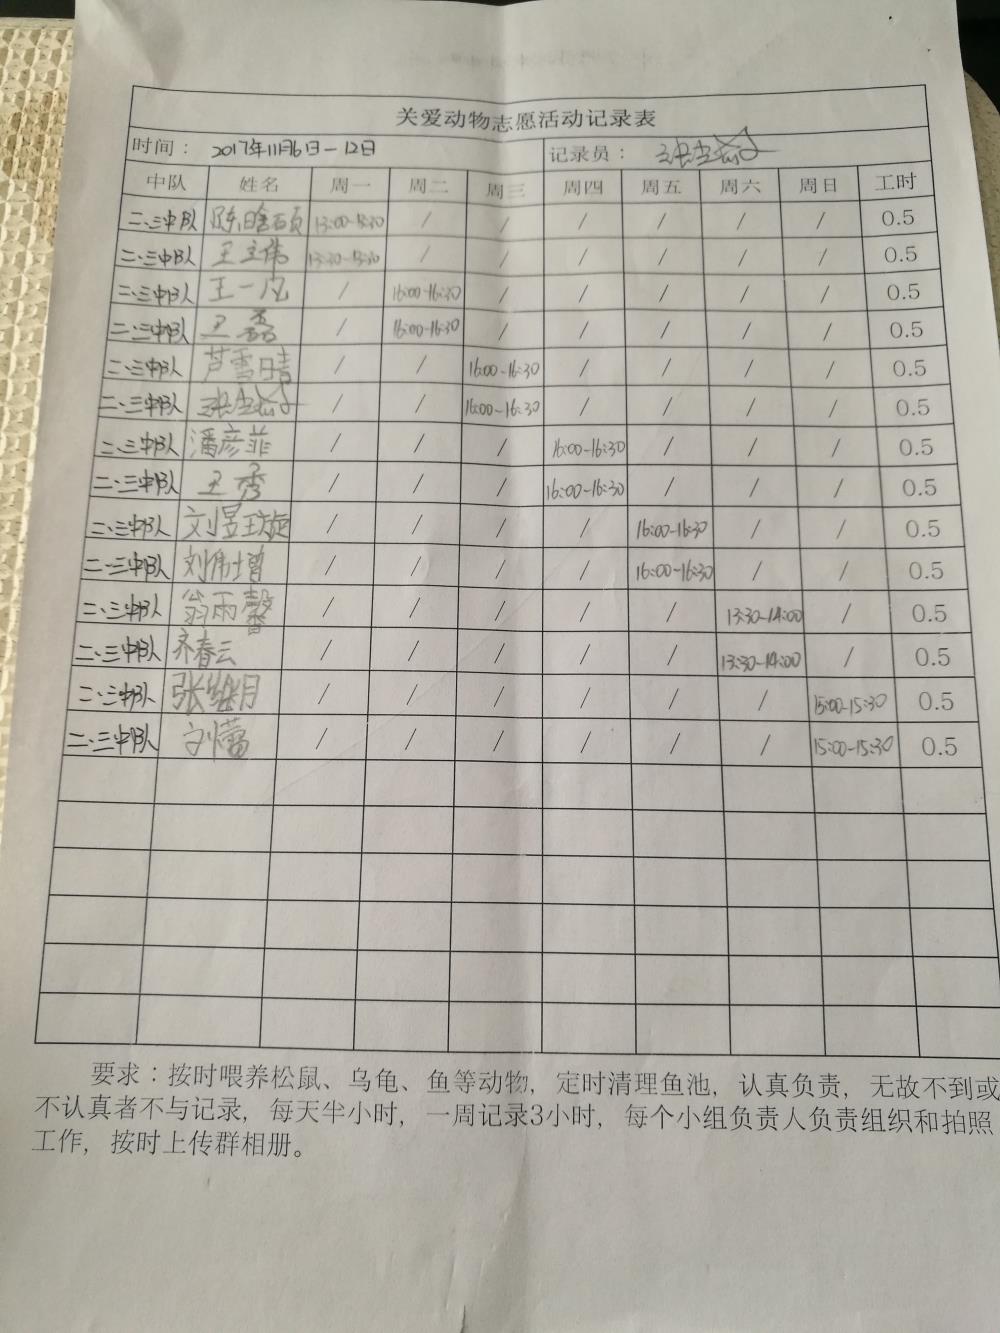 关爱动物志愿活动记录表
时间： 2017年11月6日－12日 记录员：
中队 姓名 周一 周二 周三 周四 周五 周六 周日 工时
二、三中队 / / / / / / 0.5
二、三中队 王立伟 / / / / / / 0.5
二、三中队 王一凡 / 16:00-16:30 / / / / / 0.5
二、三中队 王磊 / 16:00-16:30 / / / / / 0.5
二、三中队 芦雪晴 / / 16:00-16:30 / / / / 0.5
二、三中队 / / 16:00-16:30 / / / / 0.5
二、三中队 潘彦菲 / / / 16:00-16:30 / / / 0.5
二、三中队 王秀 / / / 16:00-16:30 / / / 0.5
二、三中队 刘昱璇 / / / / 16:00-16:30 / / 0.5
二、三中队 刘伟增 / / / / 16:00-16:30 / / 0.5
二、三中队 翁雨馨 / / / / / 13:30-14:00 / 0.5
二、三中队 齐春云 / / / / / 13:30-14:00 / 0.5
二、三中队 张继月 / / / / / / 15:00-15:30 0.5
二、三中队 刘蕾 / / / / / / 15:00-15:30 0.5
要求：按时喂养松鼠、乌龟、鱼等动物，定时清理鱼池，认真负责，无故不到或
不认真者不与记录，每天半小时，一周记录3小时，每个小组负责人负责组织和拍照
工作，按时上传群相册。